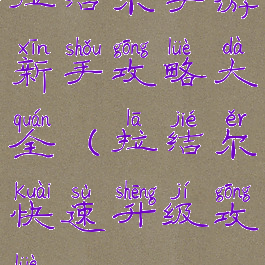 xīn shǒu gōng lüè dà
新手攻略大
quán lā jié ěr
全（拉结尔
kuài sù shēng jí gōng
快速升级攻
lüè